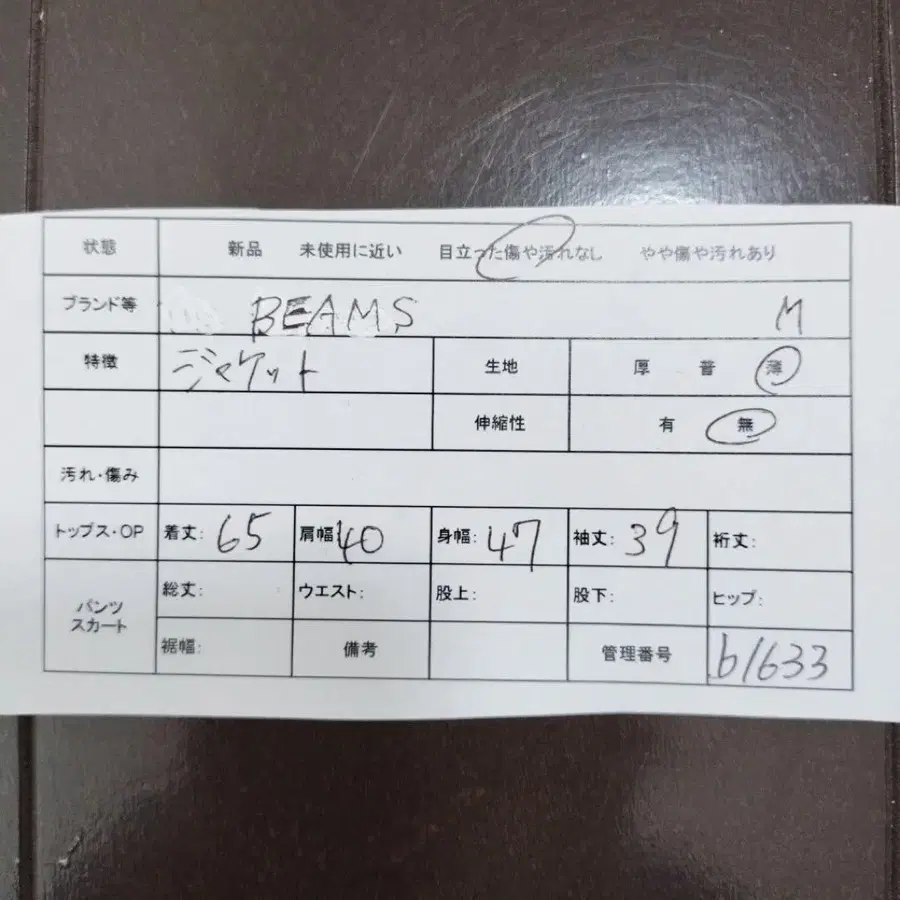 状態 新品 未使用に近い 目立った傷や汚れなし やや傷や汚れあり
ブランド等 BEAMS M
特徴 ジャケット 生地 厚 普 薄
伸縮性 有 無
汚れ・傷み
トップス・OP 着丈: 65 肩幅 40 身幅: 47 袖丈: 39 裄丈:
パンツ スカート 総丈: ウエスト: 股上: 股下: ヒップ:
裾幅: 備考 管理番号 b1633